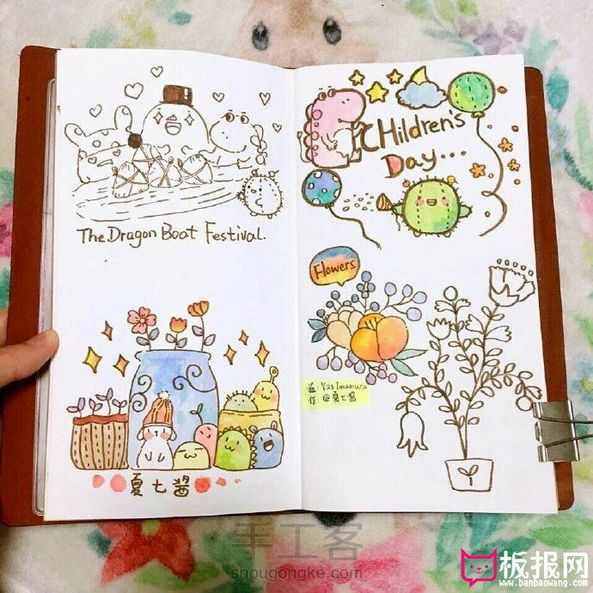 The Dragon Boat Festival.
夏七酱
Children's
Day...
Flowers
益:Yas Imamura
作@夏七酱
手工客
shougongke.com
板报网
www.banbaowang.com